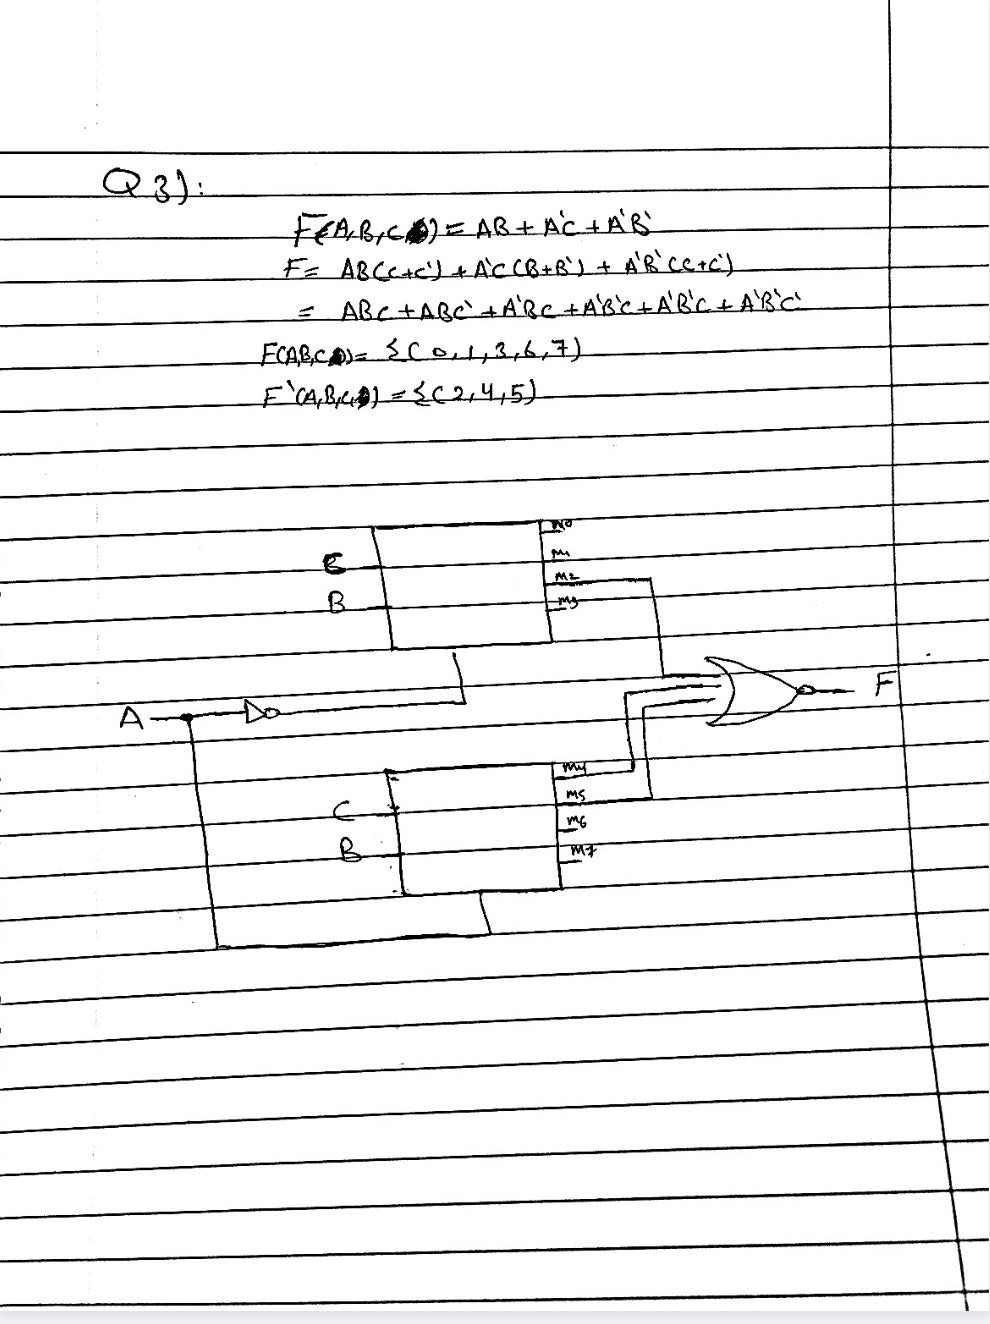 Q 3):
F(A,B,C) = AB + A'C + A'B'
F = AB(C+C') + A'C(B+B') + A'B'(C+C')
= ABC + ABC' + A'BC + A'B'C + A'B'C + A'B'C'
F(A,B,C) = Σ( 0,1,3,6,7)
F'(A,B,C) = Σ( 2,4,5)
m0
C
m1
m2
B
m3
A
F
m4
C
m5
m6
B
m7